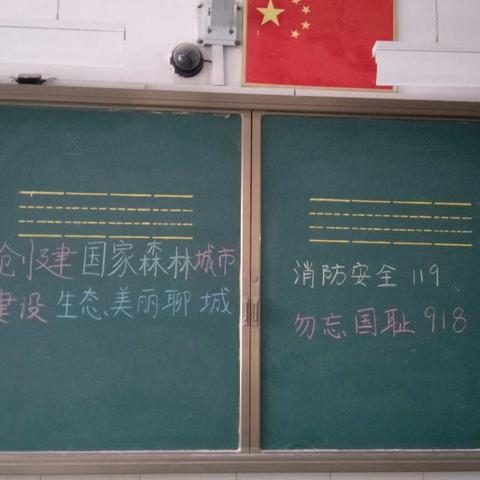 创建国家森林城市
建设生态美丽聊城
消防安全 119
勿忘国耻 918